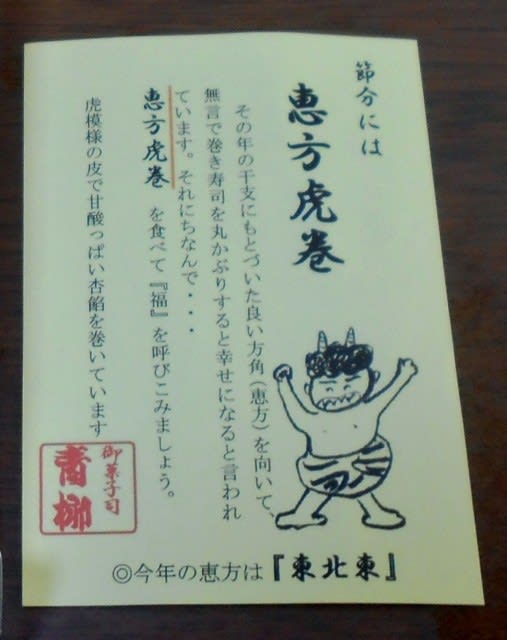 節分には
恵方虎巻
その年の干支にもとづいた良い方角(恵方)を向いて、
無言で巻き寿司を丸かぶりすると幸せになると言われ
ています。それにちなんで・・・
恵方虎巻 を食べて『福』を呼びこみましょう。
虎模様の皮で甘酸っぱい杏餡を巻いています
御菓子司
青柳
◎今年の恵方は『東北東』